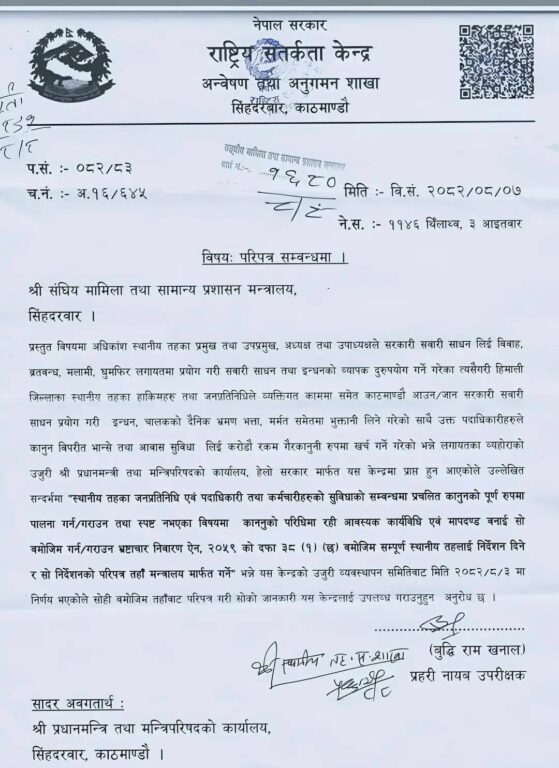 नेपाल सरकार
राष्ट्रिय सतर्कता केन्द्र
अन्वेषण तथा अनुगमन शाखा
सिंहदरवार, काठमाण्डौ
प.सं. :- ०८२/८३
च.नं. :- अ.१६/६४५
सङ्घीय मामिला तथा सामान्य प्रशासन मन्त्रालय
दर्ता नं.:- १६८०
मिति :- वि.सं. २०८२/०८/०७
ने.स. :- ११४६ थिंलाथ्व, ३ आइतवार
विषयः परिपत्र सम्बन्धमा ।
श्री संघिय मामिला तथा सामान्य प्रशासन मन्त्रालय,
सिंहदरवार ।
प्रस्तुत विषयमा अधिकांश स्थानीय तहका प्रमुख तथा उपप्रमुख, अध्यक्ष तथा उपाध्यक्षले सरकारी सवारी साधन लिई विवाह,
व्रतवन्ध, मलामी, घुमफिर लगायतमा प्रयोग गरी सवारी साधन तथा इन्धनको व्यापक दुरुपयोग गर्ने गरेका त्यसैगरी हिमाली
जिल्लाका स्थानीय तहका हाकिमहरु तथा जनप्रतिनिधिले व्यक्तिगत काममा समेत काठमाण्डौ आउन/जान सरकारी सवारी
साधन प्रयोग गरी इन्धन, चालकको दैनिक भ्रमण भत्ता, मर्मत समेतमा भुक्तानी लिने गरेको साथै उक्त पदाधिकारीहरुले
कानुन विपरीत भान्से तथा आवास सुविधा लिई करोडौ रकम गैरकानुनी रुपमा खर्च गर्ने गरेको भन्ने लगायतका व्यहोराको
उजुरी श्री प्रधानमन्त्री तथा मन्त्रिपरिषदको कार्यालय, हेलो सरकार मार्फत यस केन्द्रमा प्राप्त हुन आएकोले उल्लेखित
सन्दर्भमा "स्थानीय तहका जनप्रतिनिधि एवं पदाधिकारी तथा कर्मचारीहरुको सुविधाको सम्वन्धमा प्रचलित कानुनको पूर्ण रुपमा
पालना गर्न/गराउन तथा स्पष्ट नभएका विषयमा काननुको परिधिमा रही आवस्यक कार्यविधि एवं मापदण्ड वनाई सो
वमोजिम गर्न/गराउन भ्रष्टाचार निवारण ऐन, २०५९ को दफा ३८ (१) (छ) वमोजिम सम्पूर्ण स्थानीय तहलाई निर्देशन दिने
र सो निर्देशनको परिपत्र तहाँ मन्त्रालय मार्फत गर्ने" भन्ने यस केन्द्रको उजुरी व्यवस्थापन समितिवाट मिति २०८२/८/३ मा
निर्णय भएकोले सोही वमोजिम तहाँवाट परिपत्र गरी सोको जानकारी यस केन्द्रलाई उपलब्ध गराउनुहुन अनुरोध छ ।
(बुद्धि राम खनाल)
प्रहरी नायव उपरीक्षक
सादर अवगतार्थ :
श्री प्रधानमन्त्रि तथा मन्त्रिपरिषदको कार्यालय,
सिंहदरवार, काठमाण्डौ ।